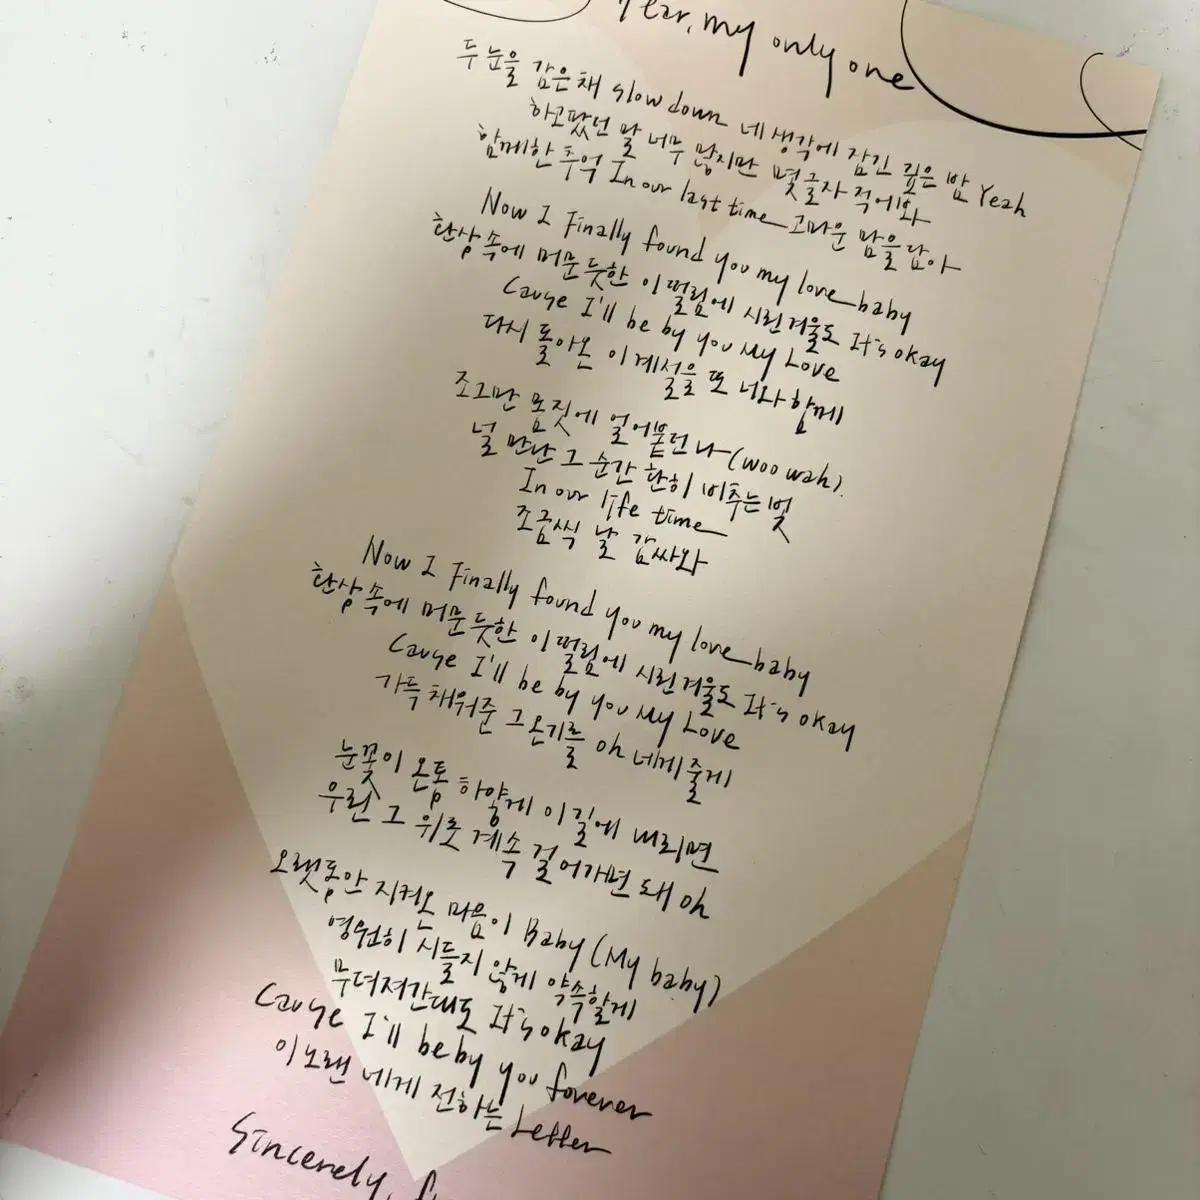 Dear, my only one
두 눈을 감은 채 slow down 네 생각에 잠긴 깊은 밤 Yeah
하고팠던 말 너무 많지만 몇 글자 적에봐
함께한 추억 In our last time 고마운 맘을 담아
Now I Finally found you my love baby
환상 속에 머문 듯한 이 떨림에 시린 겨울도 It's okay
Cause I'll be by you My Love
다시 돌아온 이 계절을 또 너와 함께
조그만 몸짓에 얼어붙던 나 (woo wah).
널 만난 그 순간 환히 비추는 빛
In our life time
조금씩 날 감싸와
Now I Finally found you my love baby
환상 속에 머문 듯한 이 떨림에 시린 겨울도 It's okay
Cause I'll be by you My Love
가득 채워준 그 온기를 oh 네게 줄게
눈꽃이 온통 하얗게 이 길에 내리면
우린 그 위로 계속 걸어가면 돼 oh
오랫동안 지켜온 마음이 Baby (My baby)
영원히 시들지 않게 약속할게
무뎌져간대도 It's okay
Cause I'll be by you forever
이 노랜 네게 전하는 Letter
Sincerely,